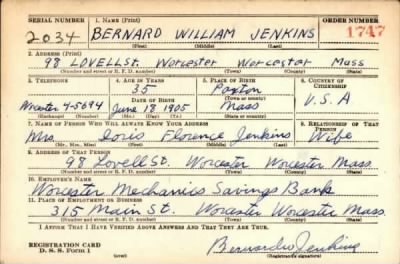 SERIAL NUMBER 1. NAME (Print) ORDER NUMBER
2034 BERNARD WILLIAM JENKINS 1747
(First) (Middle) (Last)
2. ADDRESS (Print)
98 LOVELL St. Worcester Worcester Mass
(Number and street or R. F. D. number) (Town) (County) (State)
3. TELEPHONE 4. AGE IN YEARS 5. PLACE OF BIRTH 6. COUNTRY OF CITIZENSHIP
35 Paxton
Worcester 4-5694 DATE OF BIRTH (Town or county) U.S.A
June 18 1905 Mass
(Exchange) (Number) (Mo.) (Day) (Yr.) (State or country)
7. NAME OF PERSON WHO WILL ALWAYS KNOW YOUR ADDRESS 8. RELATIONSHIP OF THAT PERSON
Mrs. Doris Florence Jenkins Wife
(Mr., Mrs., Miss) (First) (Middle) (Last)
9. ADDRESS OF THAT PERSON
98 Lovell St. Worcester Worcester Mass.
(Number and street or R. F. D. number) (Town) (County) (State)
10. EMPLOYER'S NAME
Worcester Mechanics Savings Bank
11. PLACE OF EMPLOYMENT OR BUSINESS
315 Main St. Worcester Worcester Mass.
(Number and street or R. F. D. number) (Town) (County) (State)
I AFFIRM THAT I HAVE VERIFIED ABOVE ANSWERS AND THAT THEY ARE TRUE.
REGISTRATION CARD
D. S. S. Form 1 Bernard W Jenkins
(Registrant's signature)